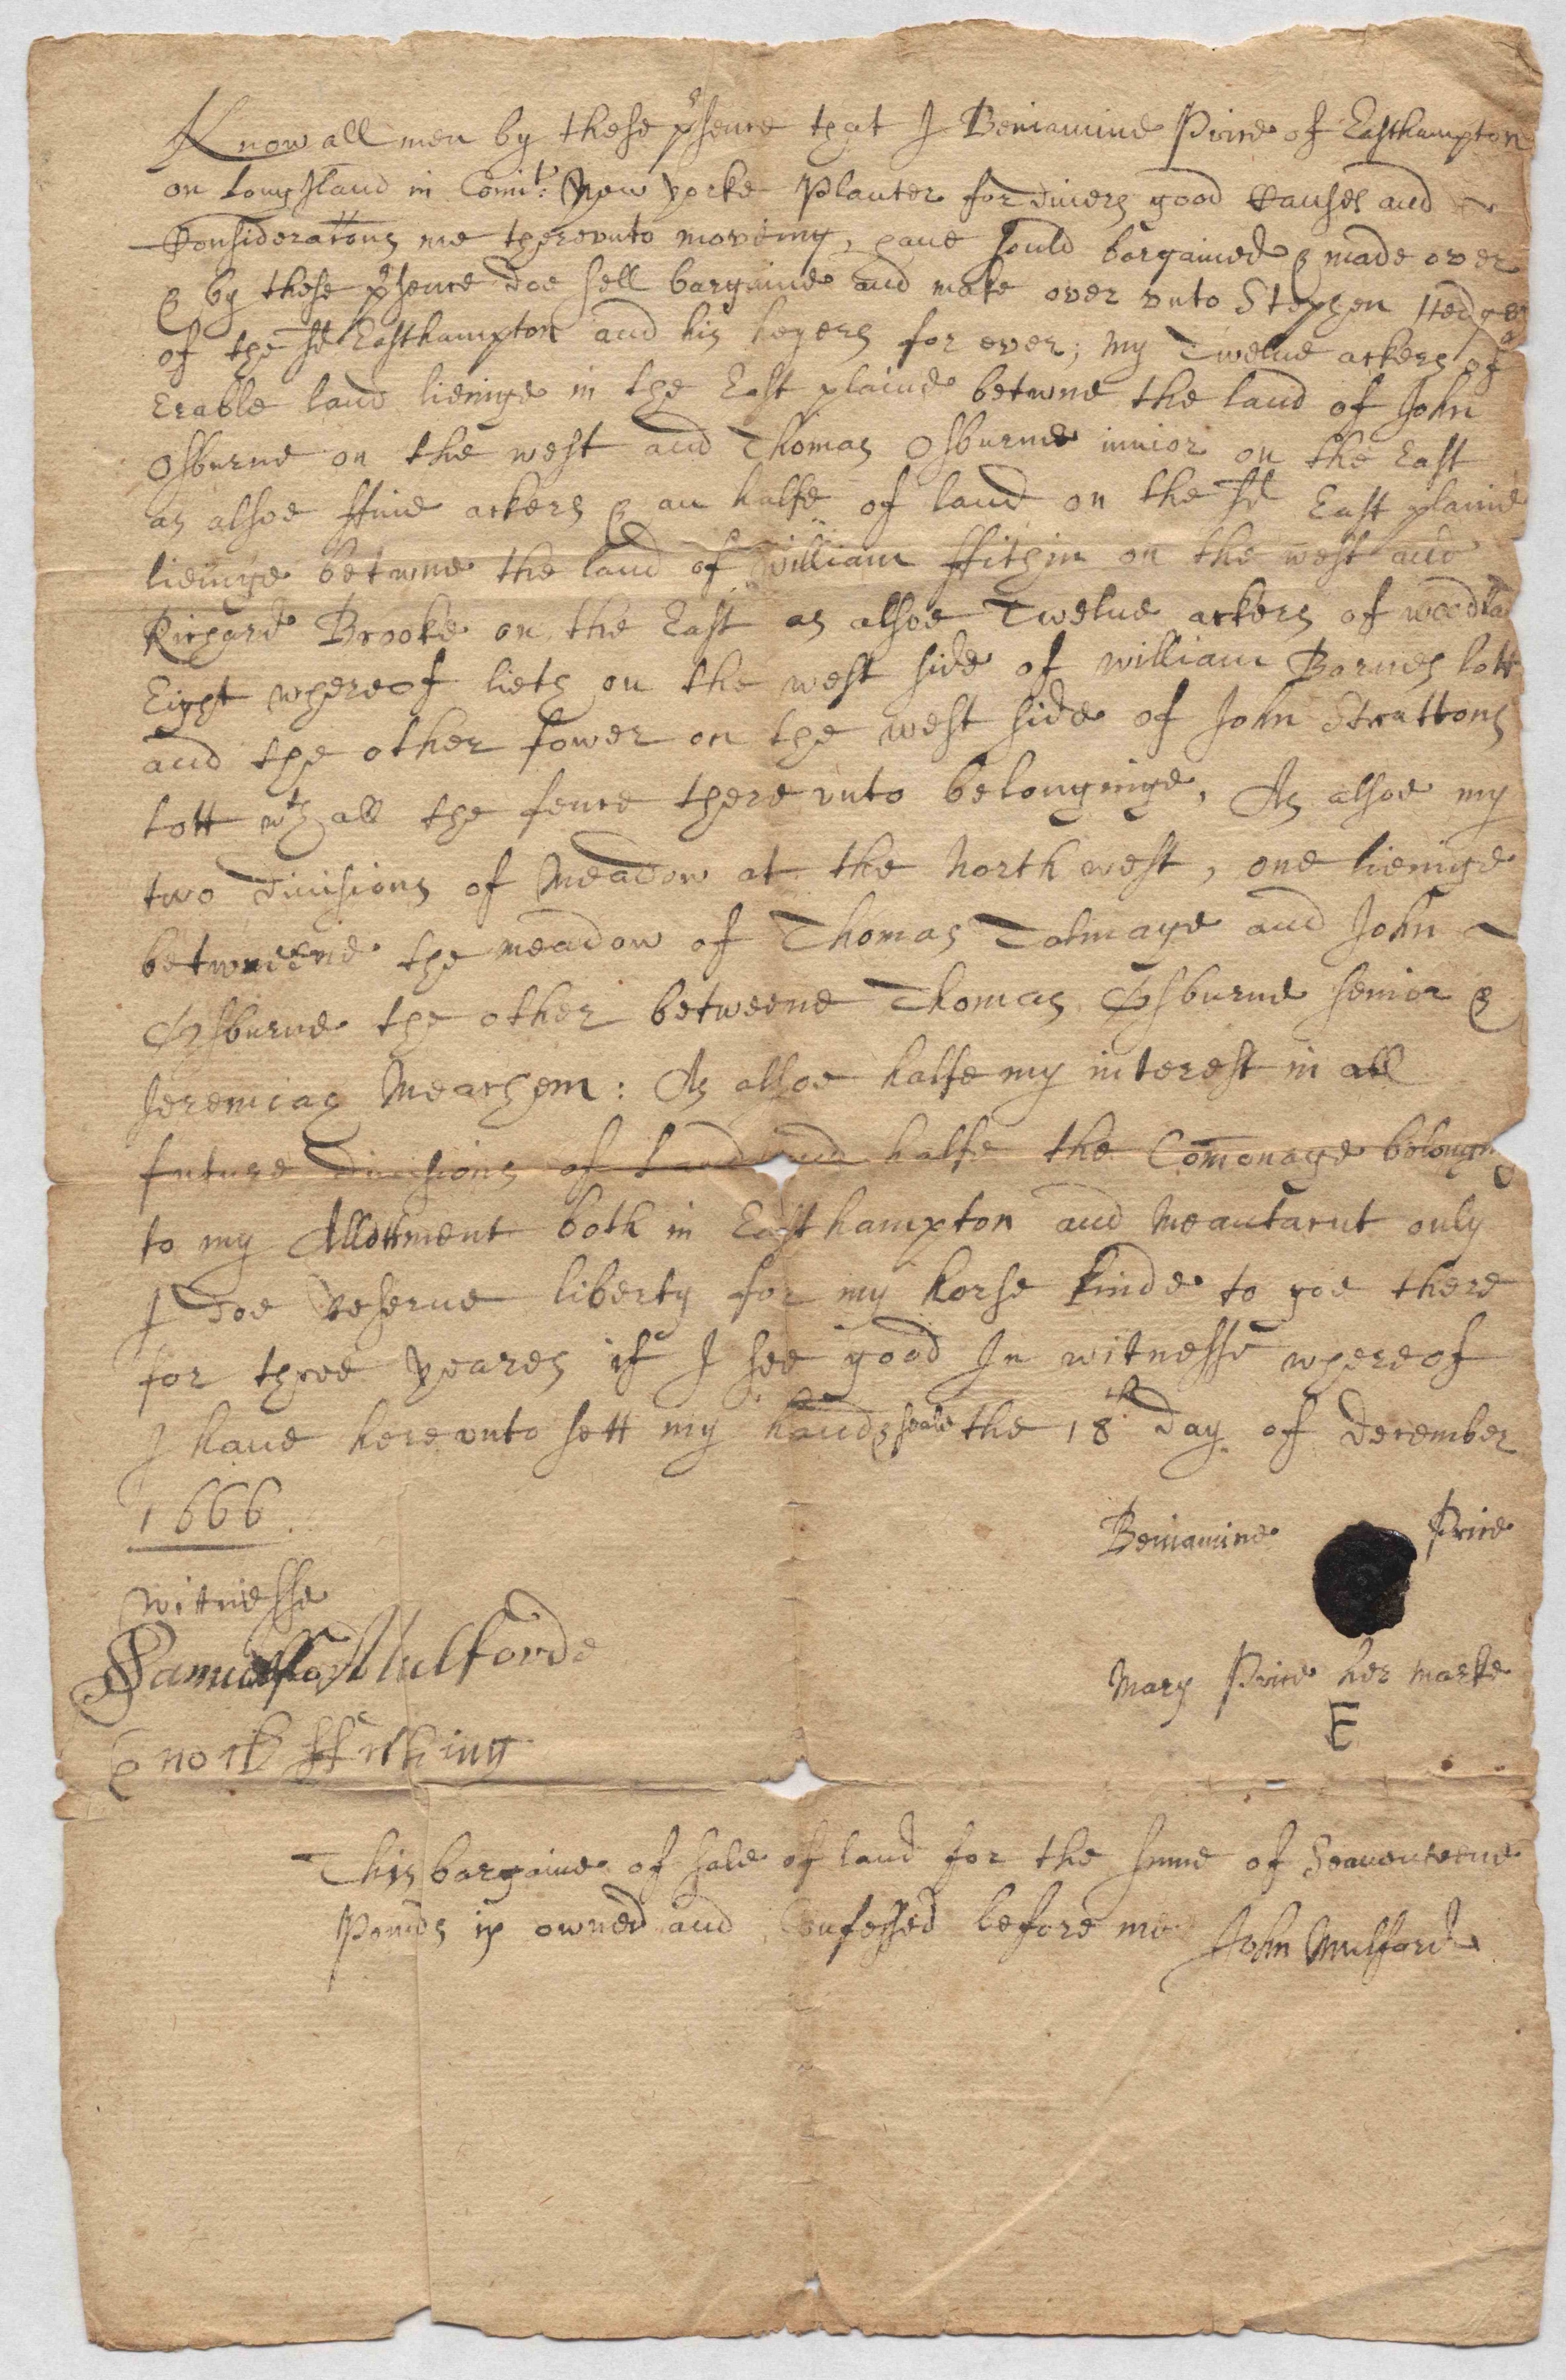 Know all men by these p^rsence that I Beniamine Price of Easthampton
on Long Iland in Comit^t: New Yorke Planter for divers good Causes and
Considerations me therevnto moveing, have sould bargained & made over
& by these p^rsence doe sell bargaine and make over vnto Stephen Hedges
of the s^d Easthampton and his heyers for ever; my Twelue ackers of
Erable land lieinge in the East plaine betwne the land of John
Osburne on the west and Thomas Osburne iunior on the East
as alsoe ffiue ackers & an halfe of land on the s^d East plaine
lieinge betwne the land of William ffithin on the west and
Richard Brooke on the East as alsoe Twelue ackers of woodla
Eight whereof lieth on the west side of william Barnes lott
and the other fower on the west side of John Strattons
lott w^th all the fence there vnto belonginge, As alsoe my
two Diuisions of Meadow at the North west, one lieinge
betweene the meadow of Thomas Talmage and John
Osburne the other betweene Thomas Osburne senior &
Jeremiah Meachem: As alsoe halfe my interest in all
future Diuisions of Land and halfe the Comonage belonging
to my Allottment both in Easthampton and Meantacut only
I doe reserue liberty for my horse kinde to goe there
for three yeares if I see good In witnesse whereof
I haue herevnto sett my hand & seale the 18^th Day of December
1666
witnesse
Beniamine Price
Samuell Mulforde
Mary Price her marke
E
Enock ffithing
This bargaine of sale of land for the sume of Seauenteene
Pounds is owned and Confessed before me John Mulford